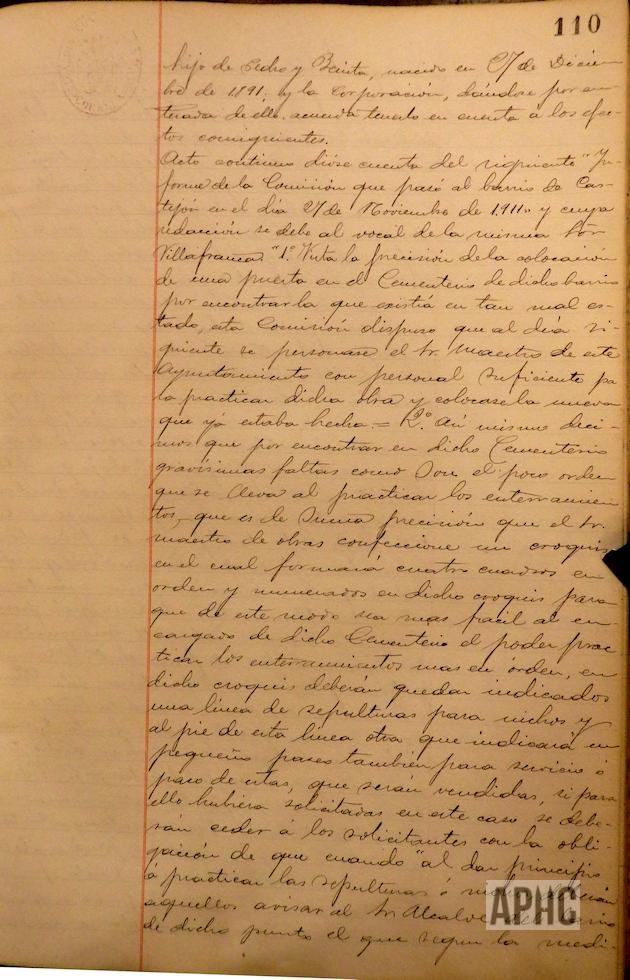 110
hijo de Pedro y Benita, nacido en 27 de Diciem-
bre de 1891. y la Corporación, dándose por en-
terada de ello. acuerda tenerlo en cuenta á los efec-
tos consiguientes.
Acto continuo dióse cuenta del siguiente "In-
forme de la Comisión que pasó al barrio de Cas-
tejón en el día 27 de Noviembre de 1.911" y cuya
redacción se debe al vocal de la misma Sor
Villafranca. "1.º Vista la precisión de la colocacion
de una puerta en el Cementerio de dicho barrio
por encontrar la que existia en tan mal es-
tado, esta Comisión dispuso que al dia si-
guiente se personase el Sr. Maestro de este
Ayuntamiento con personal suficiente pa
ra practicar dicha obra y colocase la nueva
que yá estaba hecha = 2.º Asi mismo deci-
mos que por encontrar en dicho Cementerio
gravisimas faltas como son el poco orden
que se lleva al practicar los enterramien
tos, que es de suma precisión que el Sr.
maestro de obras confeccione un croquis
en el cual formará cuatro cuadros en
orden y numerados en dicho croquis para
que de este modo sea mas fácil al en-
cargado de dicho Cementerio el poder prac
ticar los enterramientos mas en órden, en
dicho croquis deberán quedar indicados
una línea de sepulturas para nichos y
al pie de esta línea otra que indicará un
pequeño paseo tambien para servicio ó
paso de estas, que serán vendidas, si para
ello hubiera solicitadas en este caso se debe-
rán ceder á los solicitantes con la obli-
gación de que cuando "al dar principio
á practicar las sepulturas ó
aquellos avisar al Sr. Alcalde
de dicho punto el que segun la medi-
APHC